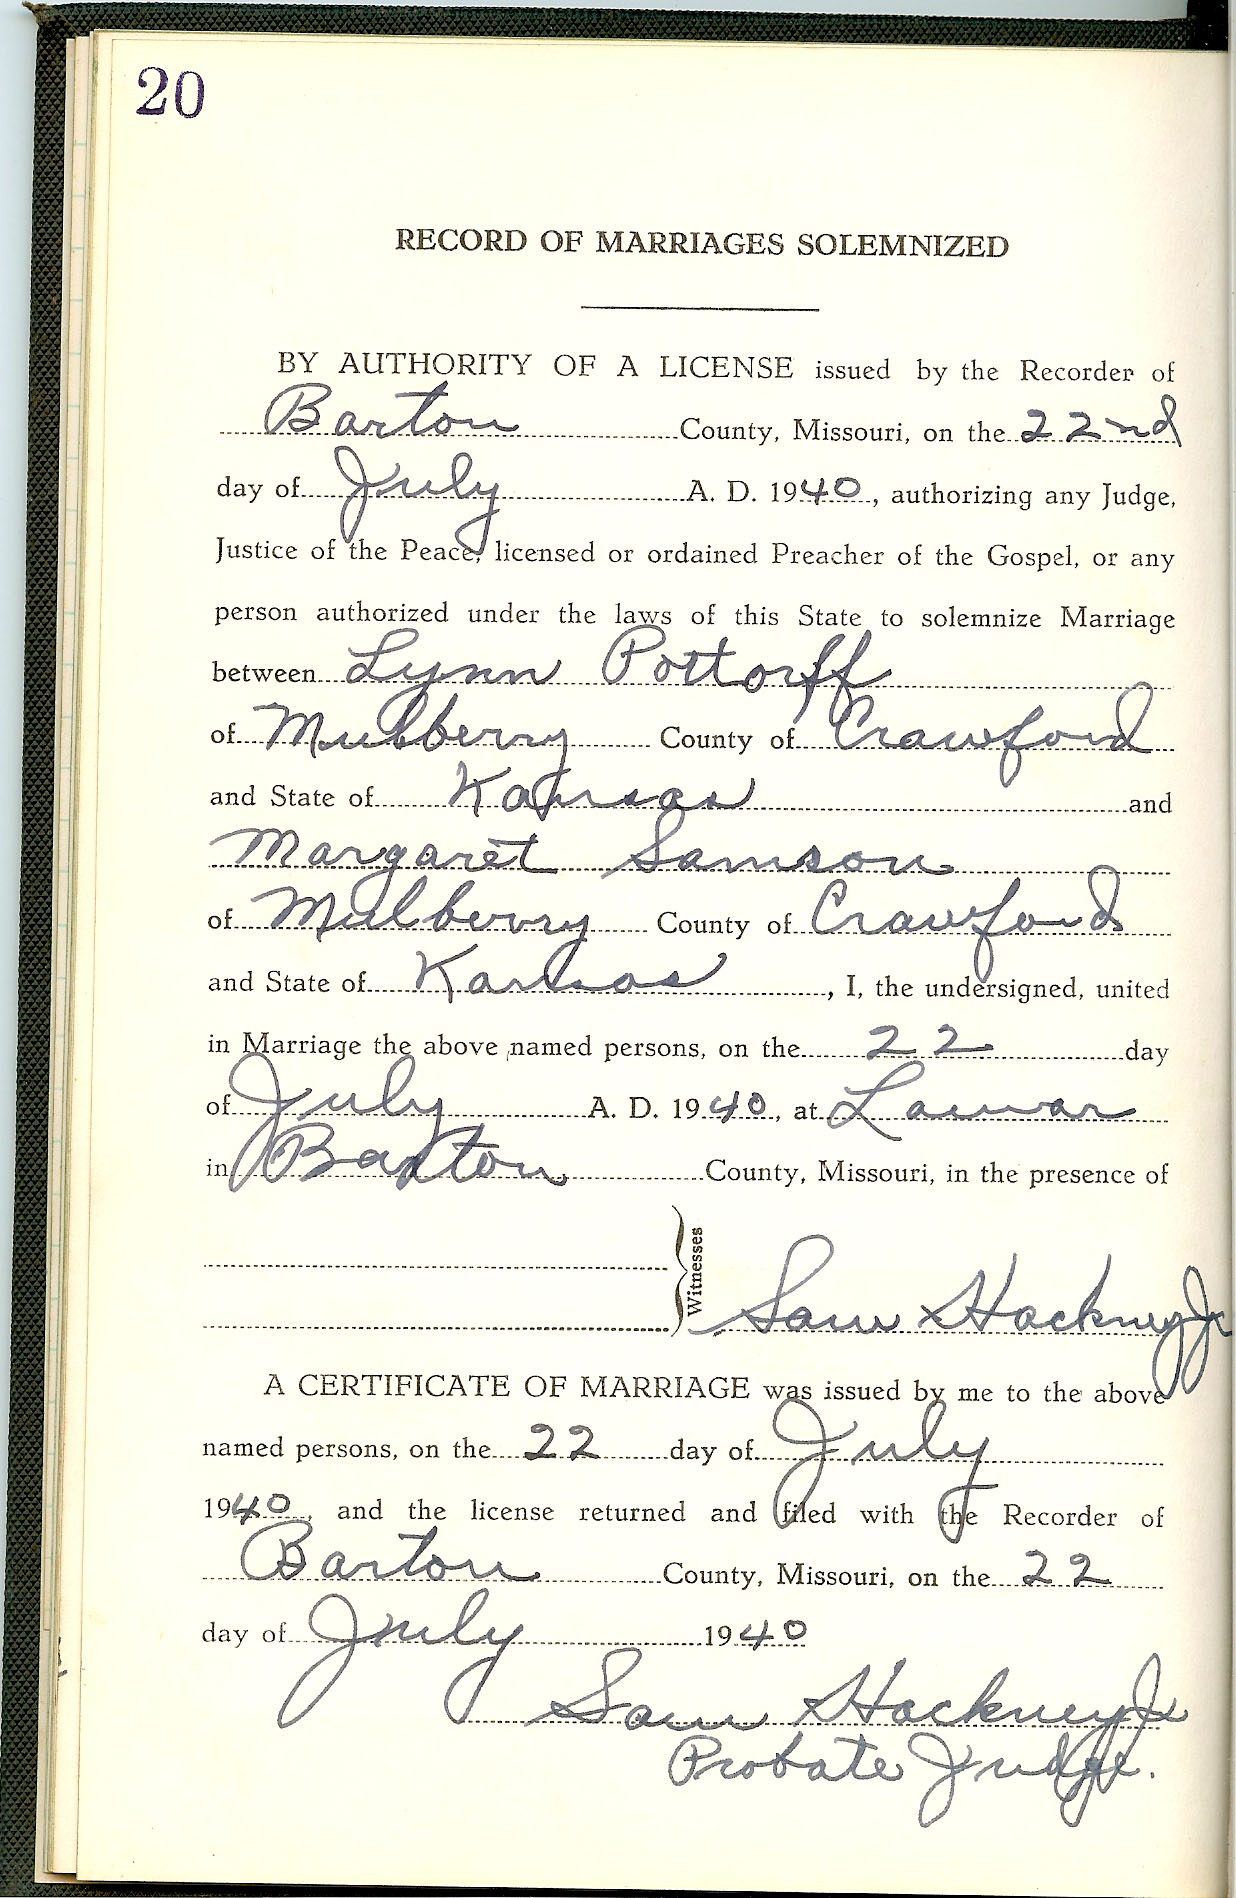 20
RECORD OF MARRIAGES SOLEMNIZED
BY AUTHORITY OF A LICENSE issued by the Recorder of
Barton County, Missouri, on the 22nd
day of July A. D. 1940, authorizing any Judge,
Justice of the Peace, licensed or ordained Preacher of the Gospel, or any
person authorized under the laws of this State to solemnize Marriage
between Lynn Pottorff
of Mulberry County of Crawford
and State of Kansas and
Margaret Samson
of Mulberry County of Crawford
and State of Kansas, I, the undersigned, united
in Marriage the above named persons, on the 22 day
of July A. D. 1940, at Lamar
in Barton County, Missouri, in the presence of
Witnesses
Sam Hackney Jr
A CERTIFICATE OF MARRIAGE was issued by me to the above
named persons, on the 22 day of July
1940, and the license returned and filed with the Recorder of
Barton County, Missouri, on the 22
day of July 1940
Sam Hackney Jr
Probate Judge.